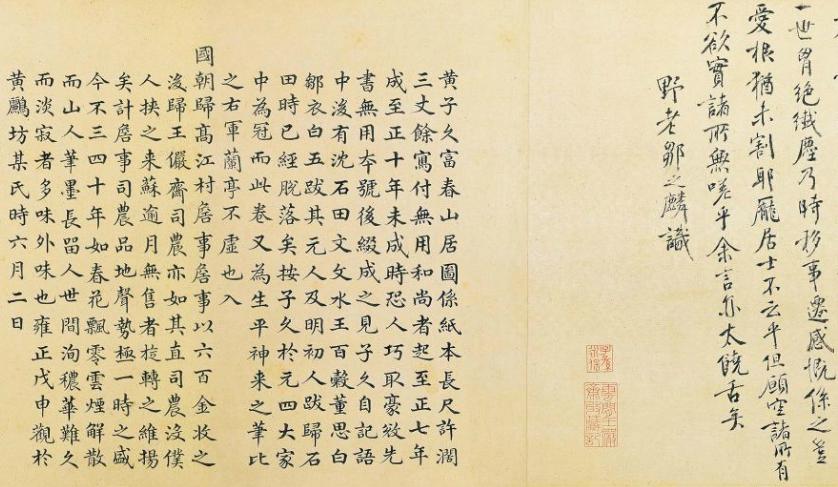 一世胃絕纖塵乃時移事遷感慨係之豈
愛根猶未割耶龐居士不云乎但願空諸所有
不欲實諸所無嗟乎余言亦太饒舌矣
野老鄒之麟識
黃子久富春山居圖係紙本長尺許濶
三丈餘寫付無用和尚者起至正七年
成至正十年未成時恐人巧取豪敓先
書無用本號後綴成之見子久自記語
中後有沈石田文文水王百穀董思白
鄒衣白五跋其元人及明初人跋歸石
田時已經脫落矣按子久於元四大家
中為冠而此卷又為生平神来之筆比
之右軍蘭亭不虛也入
國朝歸髙江村詹事詹事以六百金收之
後歸王儼齋司農亦如其直司農沒僕
人挾之来蘇逾月無售者旋轉之維揚
矣計詹事司農品地聲勢極一時之盛
今不三四十年如春花飄零雲煙解散
而山人筆墨長留人世間洵穠華難久
而淡寂者多味外味也雍正戊申觀於
黃鸝坊某氏時六月二日